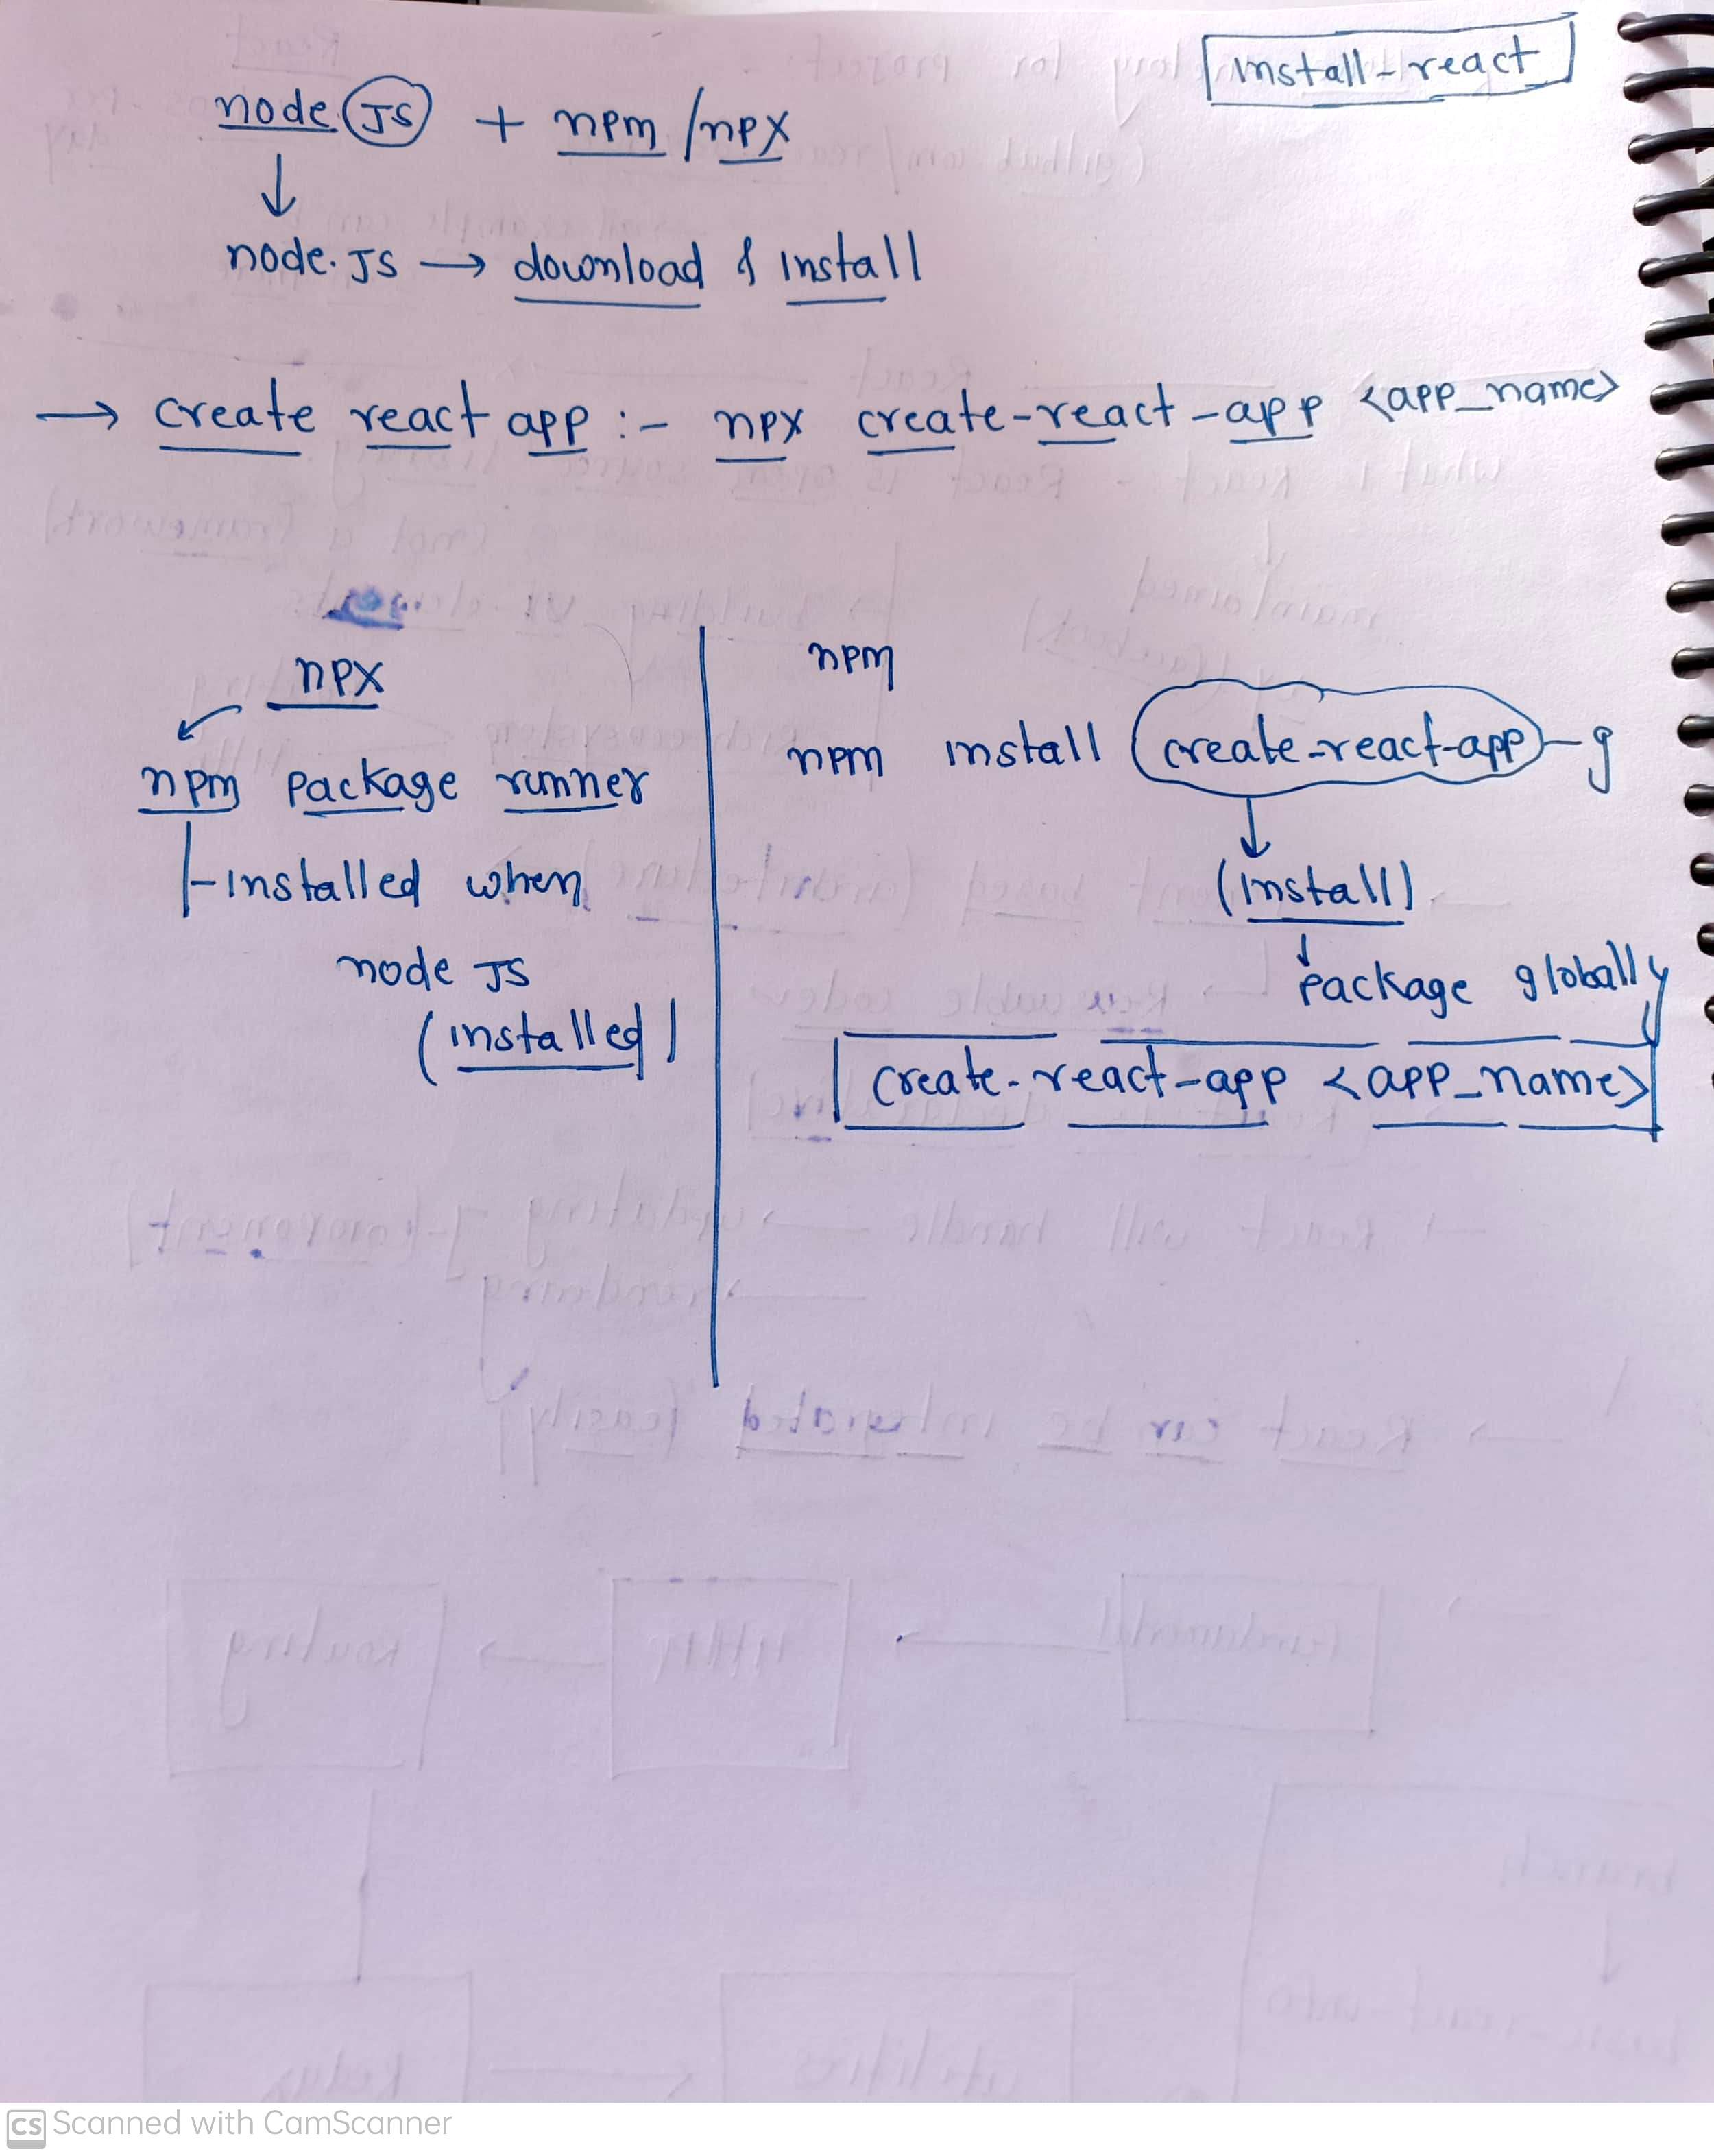 install-react
node.JS + npm/npx
↓
node.JS → download & install
→ create react app :- npx create-react-app <app_name>
npx
npm package runner
installed when
node JS
(installed)
npm
npm install create-react-app -g
(install)
package globally
create-react-app <app_name>
CS Scanned with CamScanner